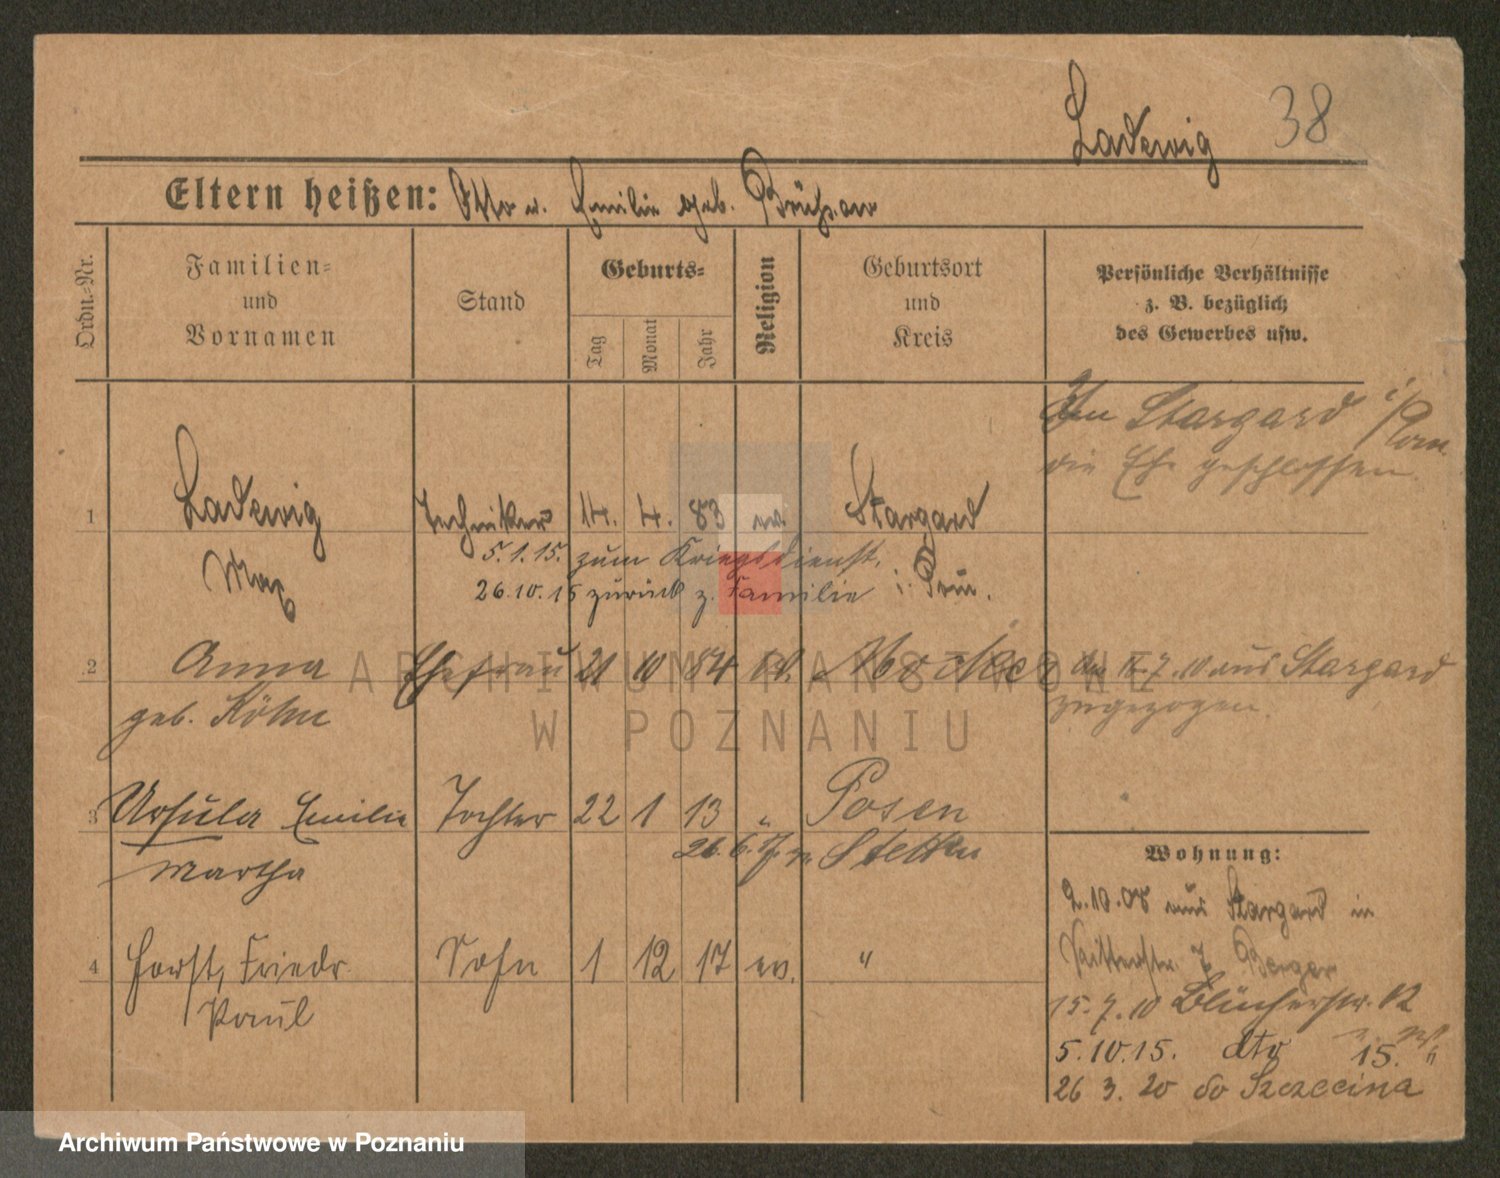 Ladewig 38
Eltern heißen: Otto u. Emilie geb.
Ordn.=Nr.
Familien=
und
Vornamen
Stand
Geburts=
Tag
Monat
Jahr
Religion
Geburtsort
und
Kreis
Persönliche Verhältnisse
z. B. bezüglich
des Gewerbes usw.
In Stargard i/Pom
die Ehe geschlossen.
1 Ladewig Techniker 14. 4. 83 ev. Stargard
Max
5.1.15. zum Kriegsdienst. i. Pom.
26.10.15 zurück z. Familie
2 Anna Ehefrau 21 10 84 ev.
geb. Köhn
7.10 aus Stargard
zugezogen.
3 Ursula Emilie Tochter 22 1 13 " Posen
Martha
26.6. Stettin
4 Horst, Friedr. Sohn 1 12 17 ev. "
Paul
Wohnung:
2.10.08 aus Stargard in
Ritterstr. 7 Berger
15.7.10 Blücherstr. 12
5.10.15. dto 15.
26 3. 20 do Szczecina
ARCHIWUM PAŃSTWOWE
W POZNANIU
Archiwum Państwowe w Poznaniu